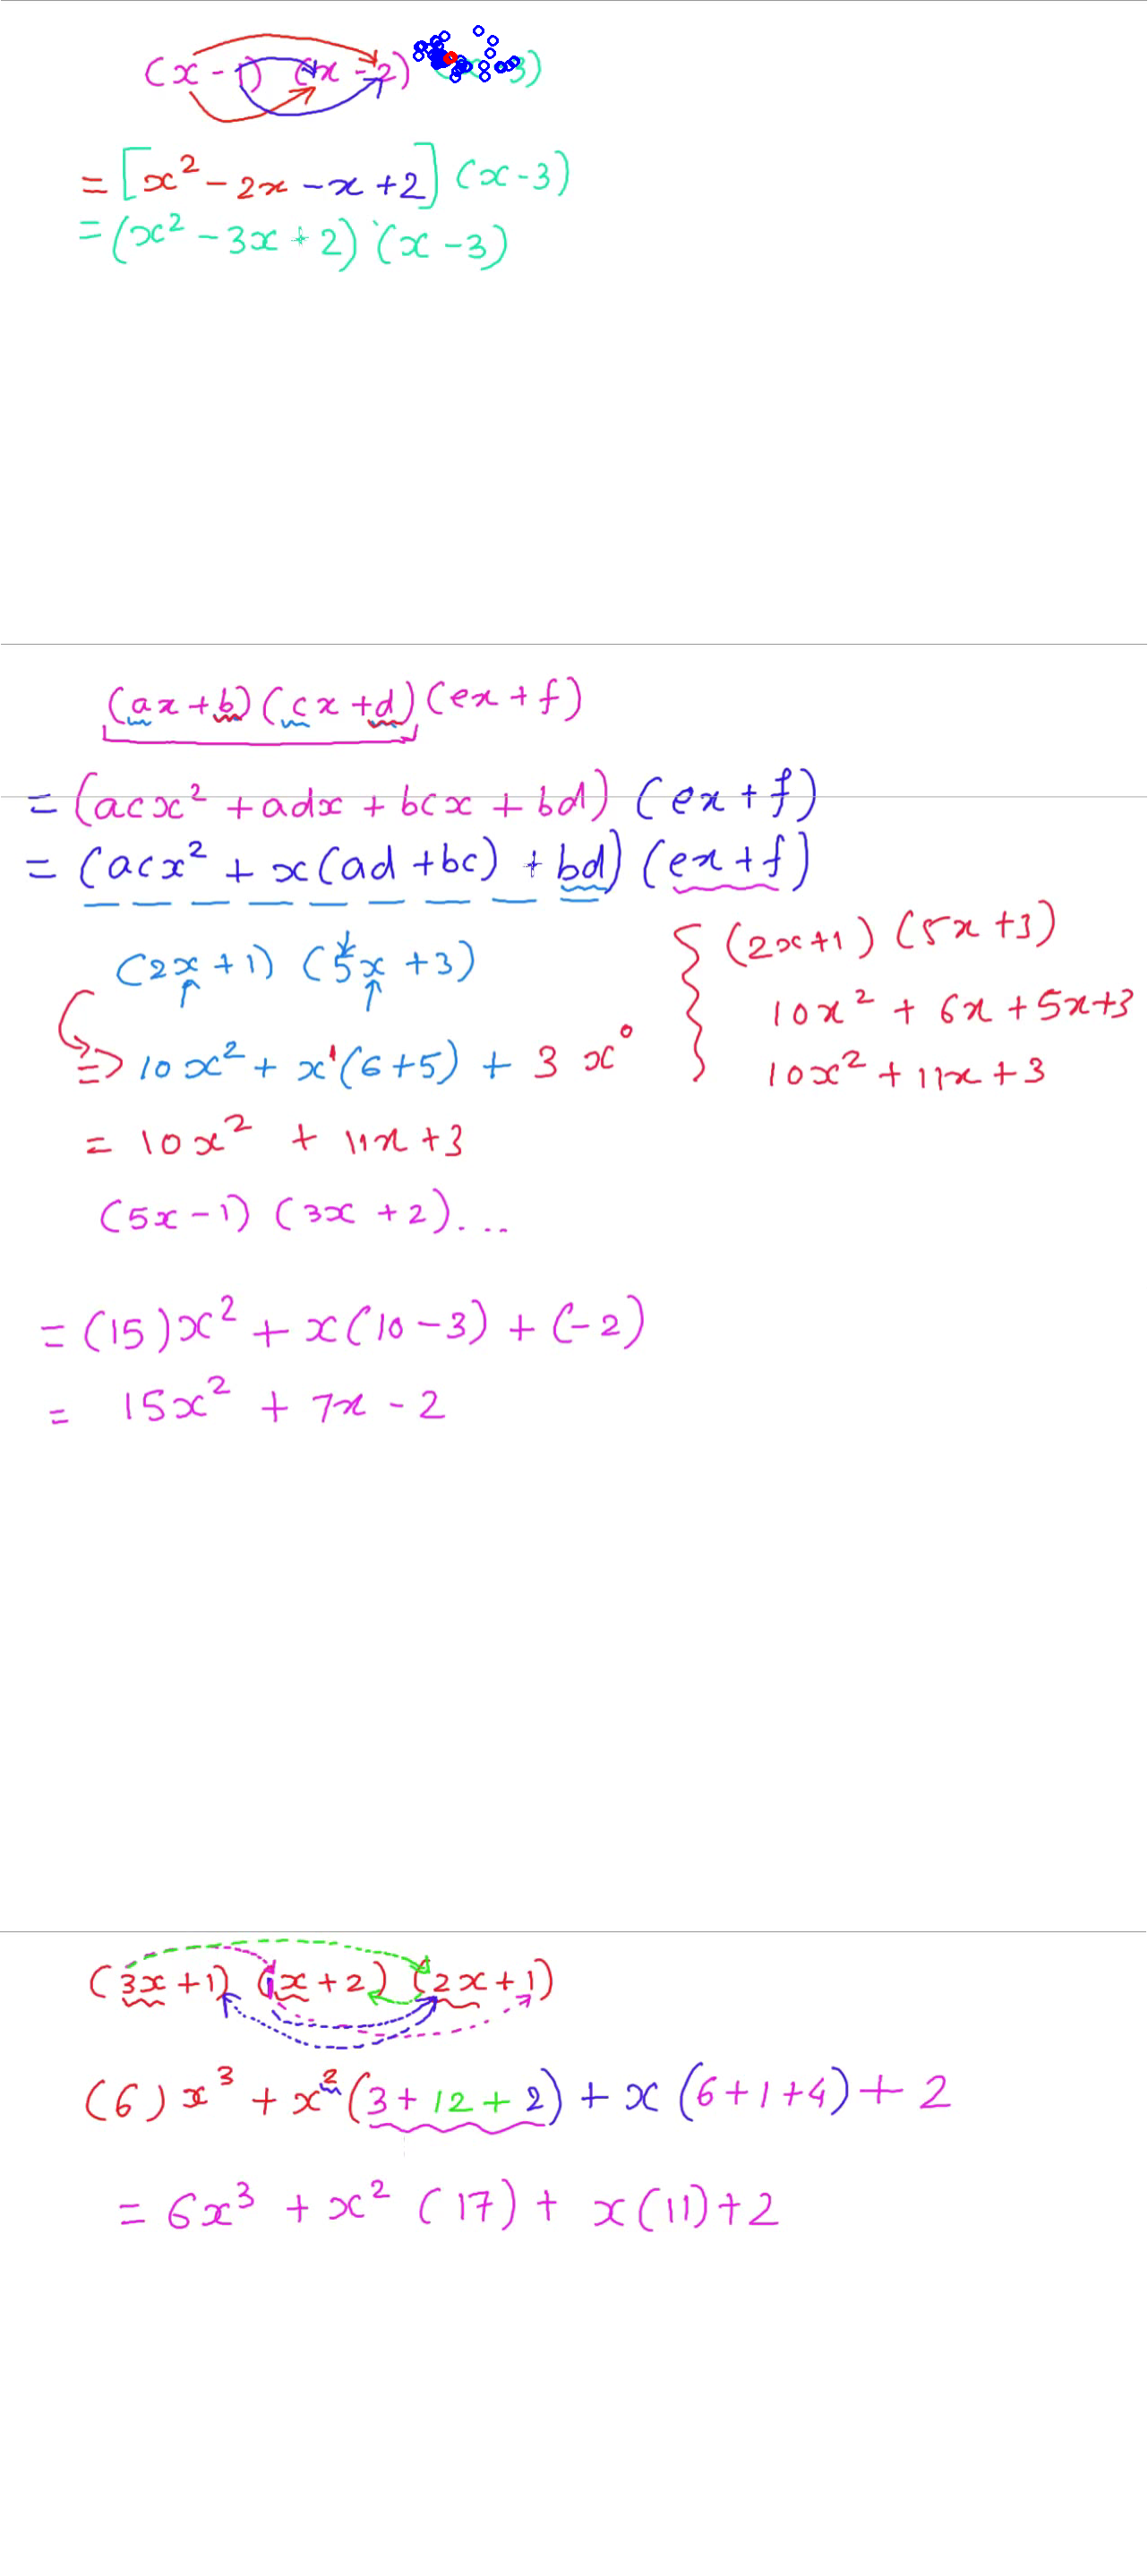 (x - 1) (x - 2) 3)
= [x² - 2x - x + 2] (x - 3)
= (x² - 3x + 2) (x - 3)
(ax + b) (cx + d) (ex + f)
= (acx² + adx + bcx + bd) (ex + f)
= (acx² + x(ad + bc) + bd) (ex + f)
(2x + 1) (5x + 3)
=> 10x² + x¹(6 + 5) + 3 x⁰
= 10x² + 11x + 3
{ (2x + 1) (5x + 3)
10x² + 6x + 5x + 3
10x² + 11x + 3
(5x - 1) (3x + 2)...
= (15)x² + x(10 - 3) + (-2)
= 15x² + 7x - 2
(3x + 1) (x + 2) (2x + 1)
(6) x³ + x² (3 + 12 + 2) + x (6 + 1 + 4) + 2
= 6x³ + x² (17) + x(11) + 2